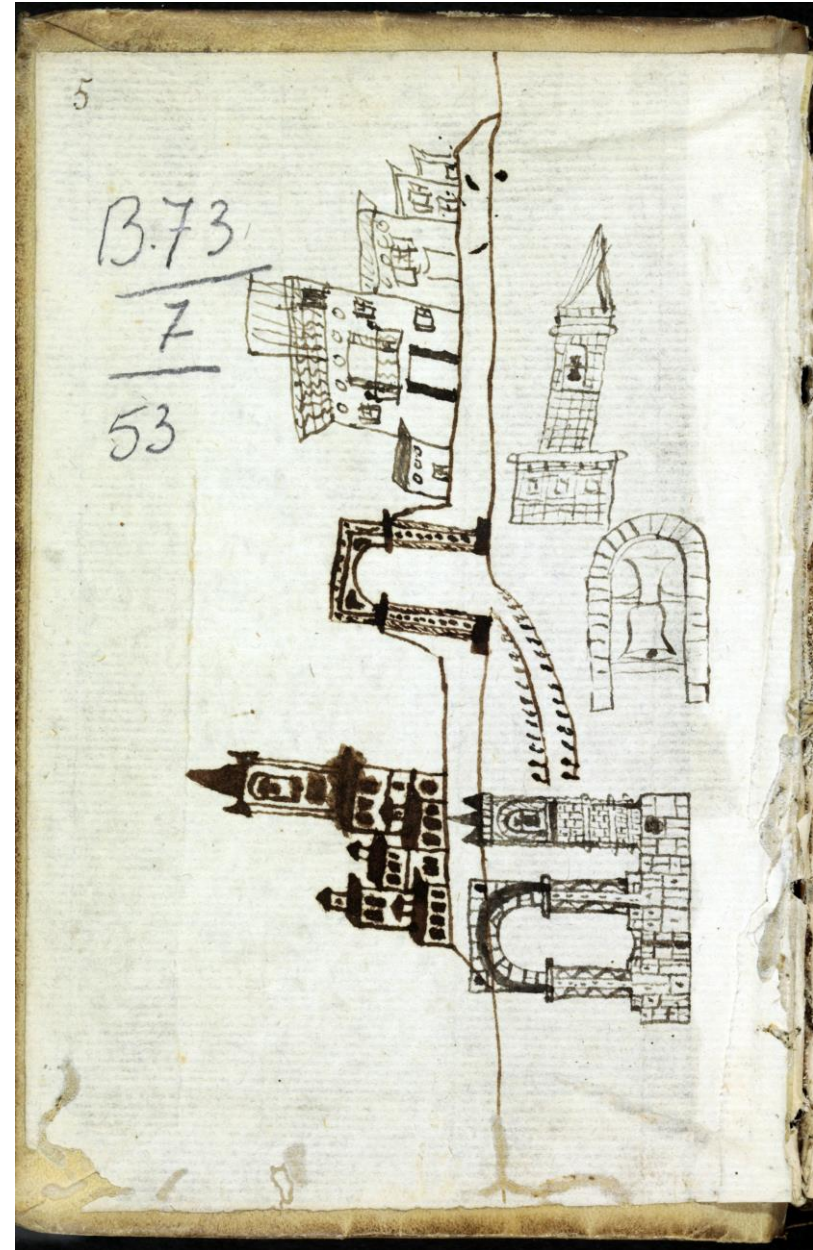 5
B.73
7
53